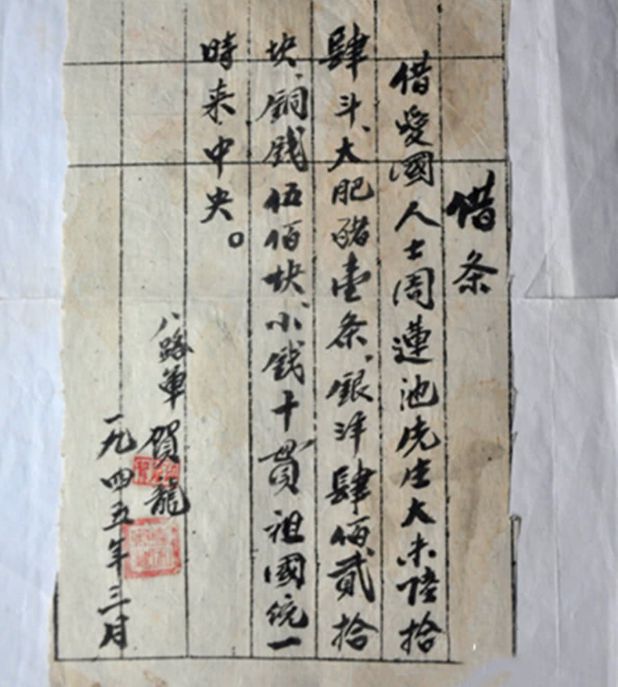 借条
借愛國人士周蓮池先生大米陸拾
肆斗、大肥猪壹条、銀洋肆佰貳拾
块、铜钱伍佰块、小钱十贯祖國统一
時来中央。
八路军 贺龍
一九四五年三月